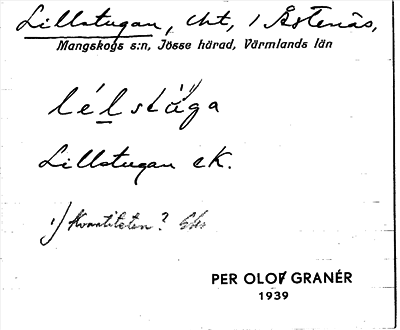 Lillstugan, cht, i Åstenäs,
Mangskogs s:n, Jösse härad, Värmlands län
lélstᶏ́ga
Lillstugan ek.
1) Kvantiteten?
PER OLOF GRANÉR
1939